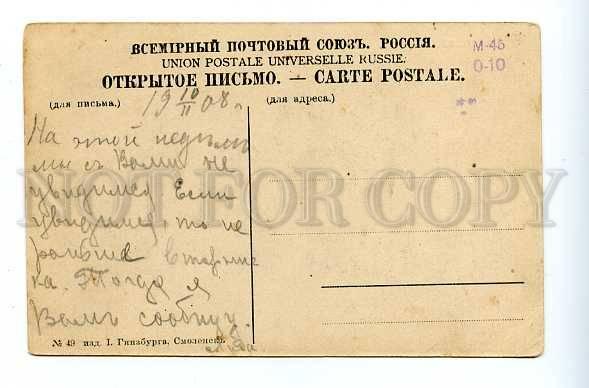 ВСЕМІРНЫЙ ПОЧТОВЫЙ СОЮЗЪ. РОССІЯ.
UNION POSTALE UNIVERSELLE RUSSIE.
ОТКРЫТОЕ ПИСЬМО. — CARTE POSTALE.
М-45
0-10
(для письма.)
(для адреса.)
19 10/II 08 г.
На этой недѣли
мы съ Вами не
увидимся Если
увидимся то не
раньше вторни
ка. Тогда я
Вамъ сообщу.
NOT FOR COPY
№ 49 изд. І. Гинзбурга, Смоленскъ.